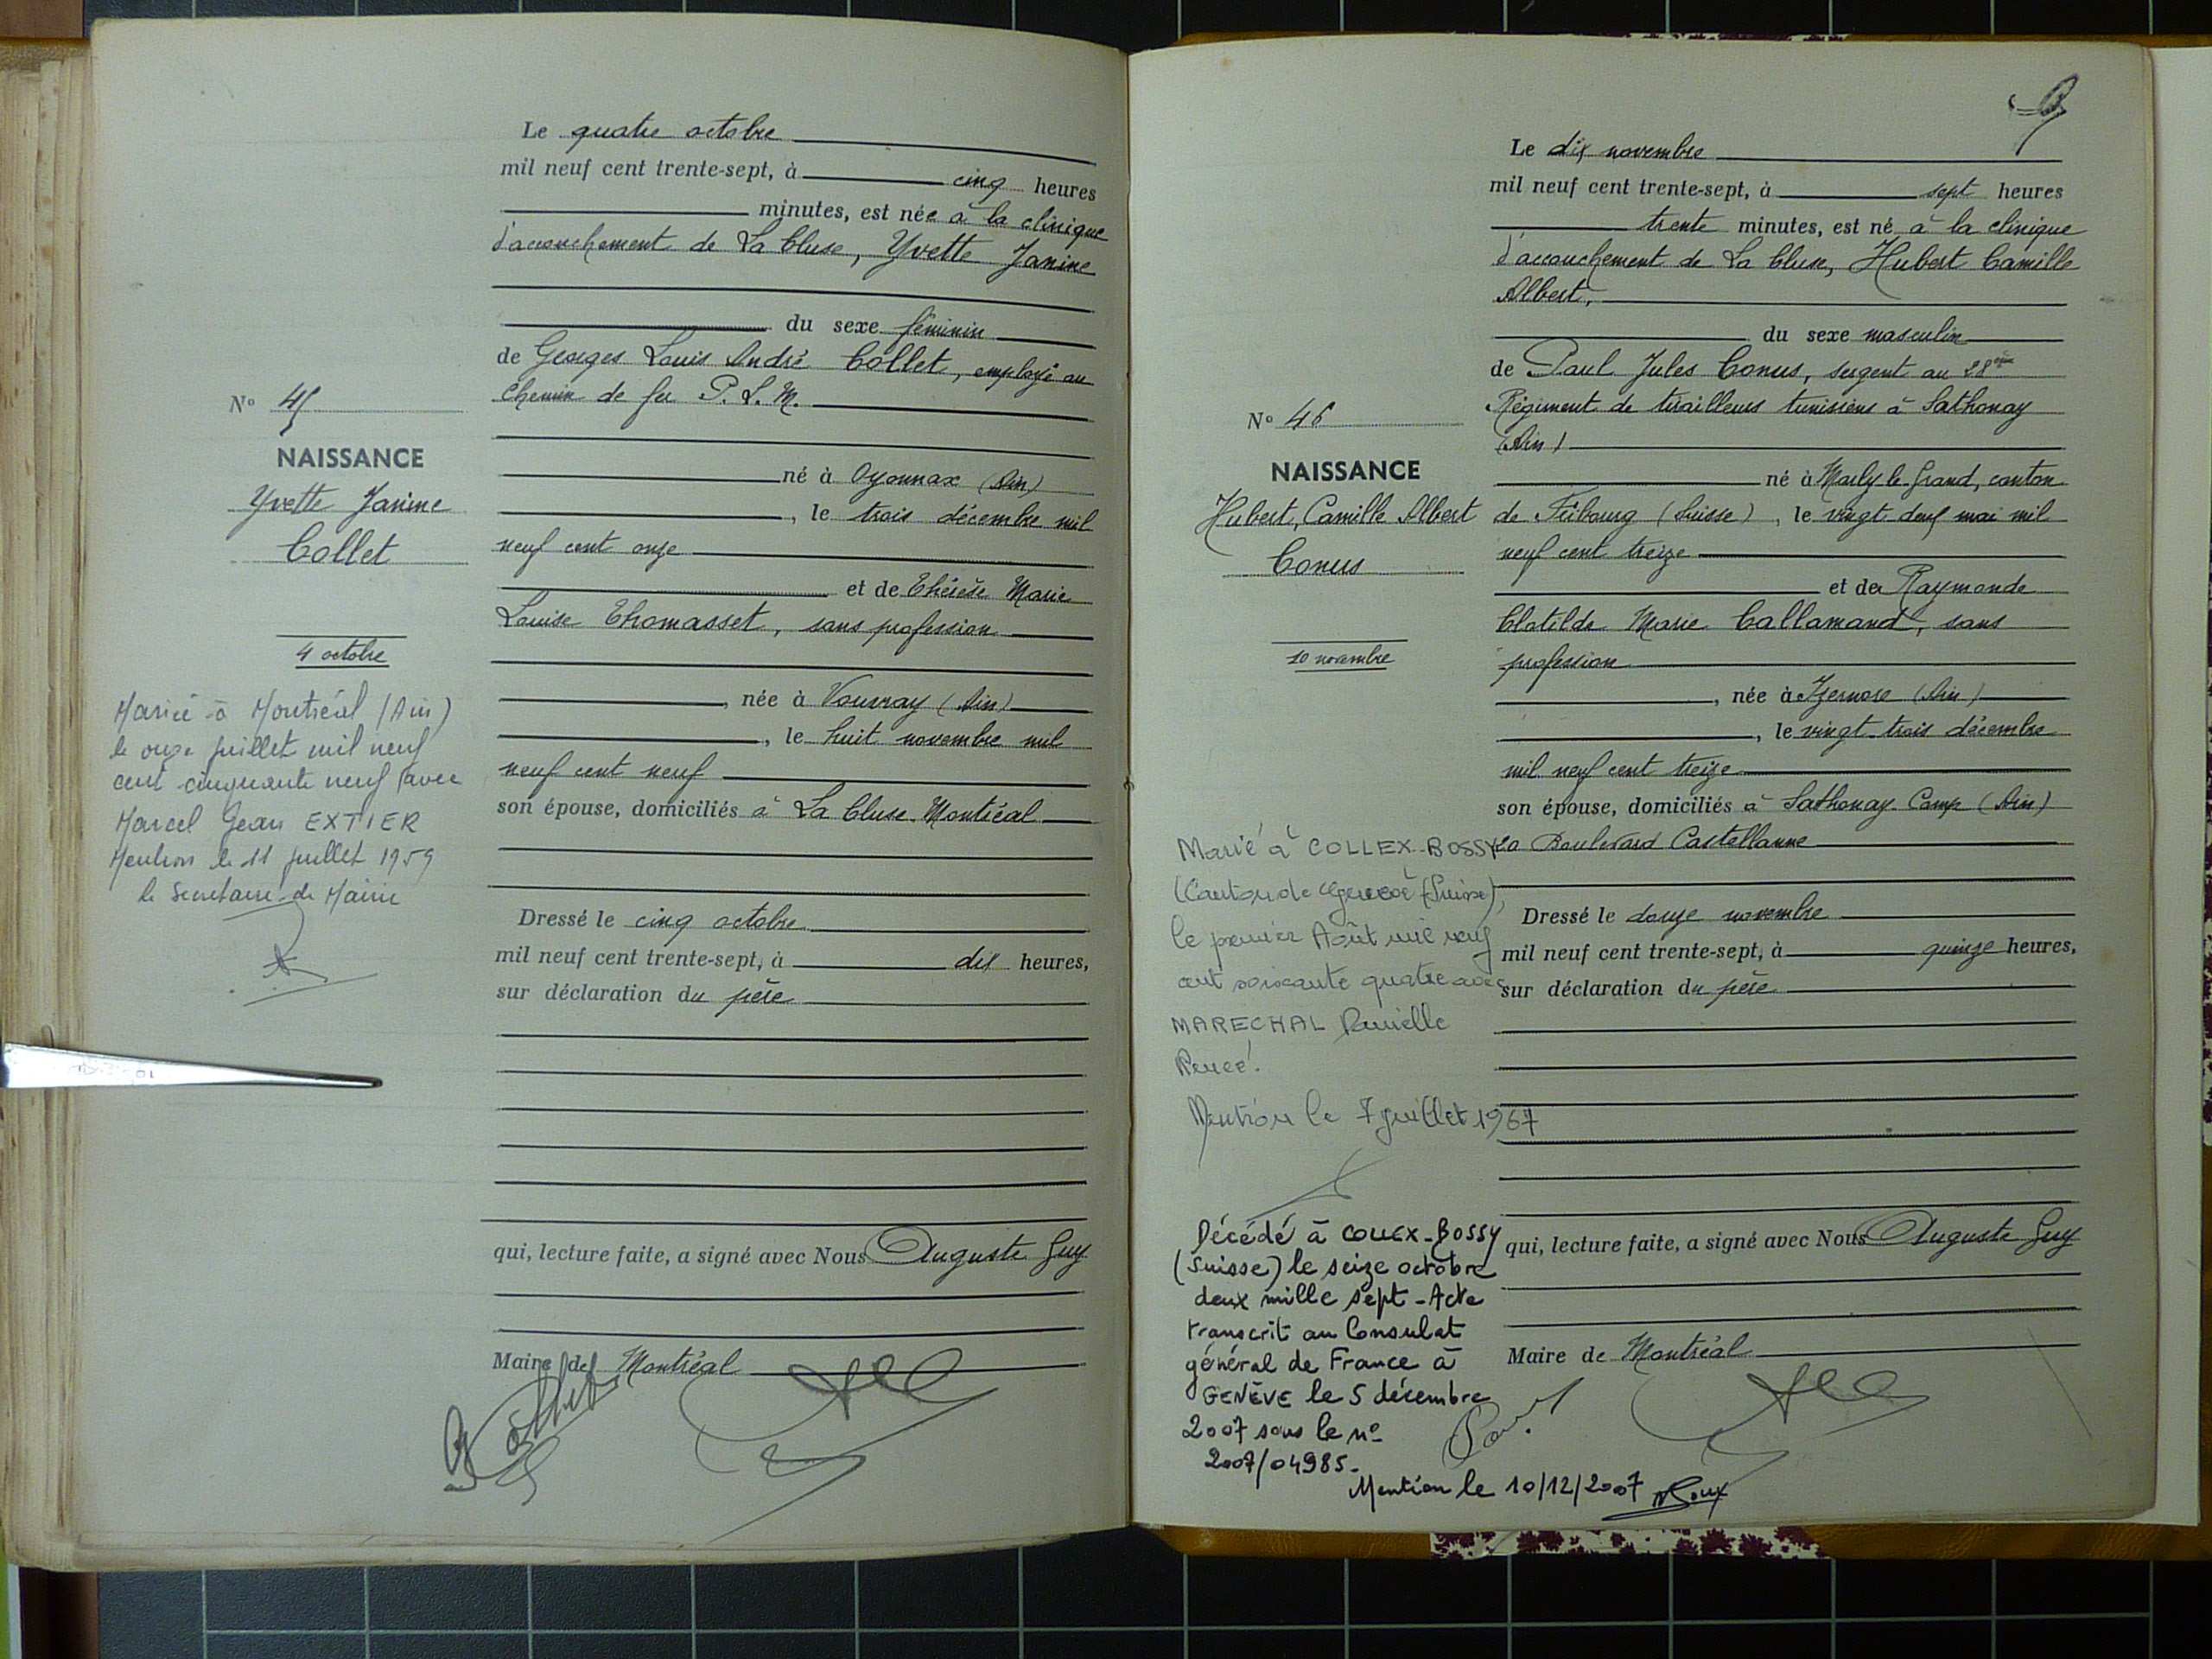 Le quatre octobre
mil neuf cent trente-sept, à cinq heures
minutes, est née à la clinique
d'accouchement de La Cluse, Yvette Janine
du sexe féminin
de Georges Louis André Collet, employé au
Chemin de fer P.L.M.
né à Oyonnax (Ain)
, le trois décembre mil
neuf cent onze
et de Thérèse Marie
Louise Thomasset, sans profession
, née à Vouvray (Ain)
, le huit novembre mil
neuf cent neuf
son épouse, domiciliés à La Cluse-Montréal
Dressé le cinq octobre
mil neuf cent trente-sept, à dix heures,
sur déclaration du père
qui, lecture faite, a signé avec Nous Auguste Guy
Maire de Montréal
N° 45
NAISSANCE
Yvette Janine
Collet
4 octobre
Mariée à Montréal (Ain)
le onze juillet mil neuf
cent cinquante neuf avec
Marcel Jean EXTIER
Mention le 11 juillet 1959
le Secrétaire de Mairie
Le dix novembre
mil neuf cent trente-sept, à sept heures
trente minutes, est né à la clinique
d'accouchement de La Cluse, Hubert Camille
Albert,
du sexe masculin
de Paul Jules Conus, sergent au 28ème
Régiment de tirailleurs tunisiens à Sathonay
(Ain)
né à Marly-le-Grand, canton
de Fribourg (Suisse), le vingt deux mai mil
neuf cent treize
et de Raymonde
Clotilde Marie Callamand, sans
profession
, née à Izernore (Ain)
, le vingt-trois décembre
mil neuf cent treize
son épouse, domiciliés à Sathonay-Camp (Ain)
20 Boulevard Castellanne
Dressé le douze novembre
mil neuf cent trente-sept, à quinze heures,
sur déclaration du père
qui, lecture faite, a signé avec Nous Auguste Guy
Maire de Montréal
N° 46
NAISSANCE
Hubert, Camille Albert
Conus
10 novembre
Marié à COLLEX-BOSSY
(Canton de Genève) (Suisse),
le premier Août mil neuf
cent soixante quatre avec
MARECHAL Danielle
Renée.
Mention le 7 juillet 1967
Décédé à COLLEX-BOSSY
(Suisse) le seize octobre
deux mille sept - Acte
transcrit au Consulat
général de France à
GENÈVE le 5 décembre
2007 sous le n°
2007/04985.
Mention le 10/12/2007